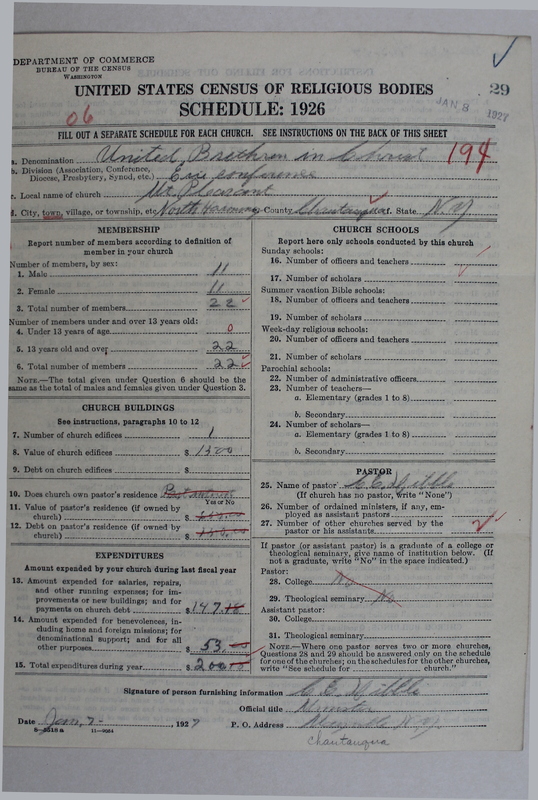 DEPARTMENT OF COMMERCE
BUREAU OF THE CENSUS
WASHINGTON
UNITED STATES CENSUS OF RELIGIOUS BODIES
29
SCHEDULE: 1926
JAN 8 1927
06
FILL OUT A SEPARATE SCHEDULE FOR EACH CHURCH. SEE INSTRUCTIONS ON THE BACK OF THIS SHEET
a. Denomination United Brethren in Christ 194
b. Division (Association, Conference,
Diocese, Presbytery, Synod, etc.) Erie Conference
c. Local name of church Mt. Pleasant
d. City, town, village, or township, etc. North Harmony County Chautauqua State N.Y.
MEMBERSHIP
Report number of members according to definition of
member in your church
Number of members, by sex:
1. Male 11
2. Female 11
3. Total number of members 22
Number of members under and over 13 years old:
4. Under 13 years of age 0
5. 13 years old and over 22
6. Total number of members 22
NOTE.—The total given under Question 6 should be the
same as the total of males and females given under Question 3.
CHURCH BUILDINGS
See instructions, paragraphs 10 to 12
7. Number of church edifices 1
8. Value of church edifices $ 1500
9. Debt on church edifices $
10. Does church own pastor's residence
Yes or No
11. Value of pastor's residence (if owned by
church) $
12. Debt on pastor's residence (if owned by
church) $
EXPENDITURES
Amount expended by your church during last fiscal year
13. Amount expended for salaries, repairs,
and other running expenses; for im-
provements or new buildings; and for
payments on church debt $ 147.18
14. Amount expended for benevolences, in-
cluding home and foreign missions; for
denominational support; and for all
other purposes $ 53.00
15. Total expenditures during year $ 200
CHURCH SCHOOLS
Report here only schools conducted by this church
Sunday schools:
16. Number of officers and teachers
17. Number of scholars
Summer vacation Bible schools:
18. Number of officers and teachers
19. Number of scholars
Week-day religious schools:
20. Number of officers and teachers
21. Number of scholars
Parochial schools:
22. Number of administrative officers
23. Number of teachers—
a. Elementary (grades 1 to 8)
b. Secondary
24. Number of scholars—
a. Elementary (grades 1 to 8)
b. Secondary
PASTOR
25. Name of pastor C. C. Dibble
(If church has no pastor, write "None")
26. Number of ordained ministers, if any, em-
ployed as assistant pastors
27. Number of other churches served by the
pastor or his assistants 2
If pastor (or assistant pastor) is a graduate of a college or
theological seminary, give name of institution below. (If
not a graduate, write "No" in the space indicated.)
Pastor:
28. College No
29. Theological seminary No
Assistant pastor:
30. College
31. Theological seminary
NOTE.—Where one pastor serves two or more churches,
Questions 28 and 29 should be answered only on the schedule
for one of the churches; on the schedules for the other churches,
write "See schedule for church."
Signature of person furnishing information C. C. Dibble
Official title Minister
Date Jan. 7-, 1927 P. O. Address N.Y.
8—5518 a
Chautauqua